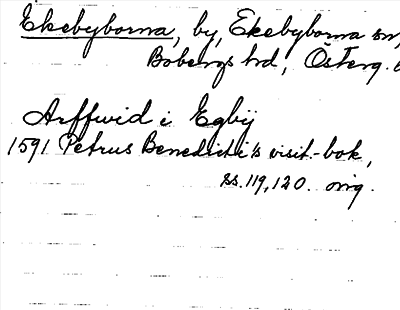 Ekebyborna, by, Ekebyborna sn,
Bobergs hd, Österg.
Arffwid i Egbij
1591 Petrus Benedicti's visit.-bok,
ss. 119, 120. orig.